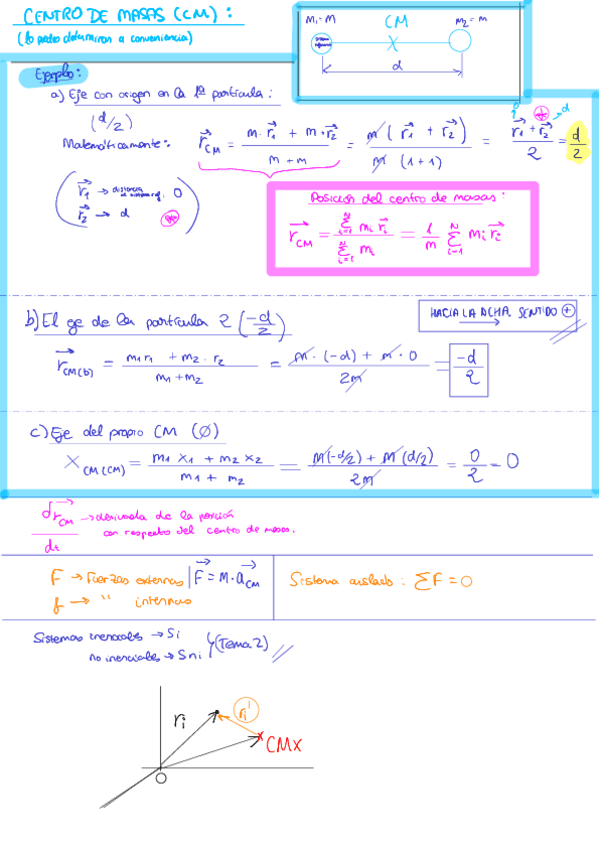 CENTRO DE MASAS (CM) :
(lo puedo determinar a conveniencia)
M₁=M CM m₂=m
d
Ejemplo:
a) Eje con origen en la 1ª partícula :
(d/2)
Matemáticamente:
r⃗CM = (m·r⃗₁ + m·r⃗₂)/(m+m) = m(r⃗₁ + r⃗₂)/m(1+1) = (r⃗₁+r⃗₂)/2 = d/2
0 d
r⃗₁ → distancia 0
r⃗₂ → d
Posición del centro de masas :
r⃗CM = (Σᵢ₌₁ᴺ mᵢ r⃗ᵢ)/(Σᵢ₌₁ᴺ mᵢ) = 1/m Σᵢ₌₁ᴺ mᵢ r⃗ᵢ
b) El eje de la partícula 2 (-d/2)
HACIA LA DCHA. SENTIDO ⊕
r⃗CM(b) = (m₁r₁ + m₂·r₂)/(m₁+m₂) = (m·(-d) + m·0)/2m = -d/2
c) Eje del propio CM (Ø)
X CM(CM) = (m₁ x₁ + m₂ x₂)/(m₁ + m₂) = (M(-d/2) + M(d/2))/2m = 0/2 = 0
dr⃗CM/dt → derivada de la posición
con respecto del centro de masas.
F → Fuerzas externas | F⃗ = M·a⃗CM
f → " internas
Sistema aislado : ΣF = 0
Sistemas inerciales → Si
no inerciales → Sni
(Tema 2)
rᵢ
rᵢ'
CMx
O